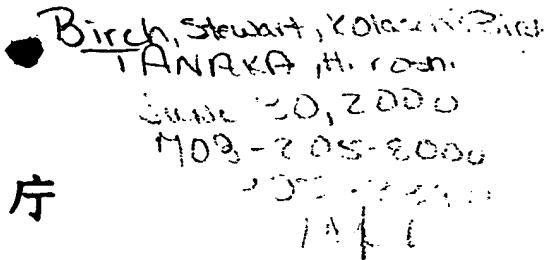 Birch, Stewart, Kolasch Birch
TANAKA, Hiroshi
June 30, 2000
703-205-8000
庁
1 of 1